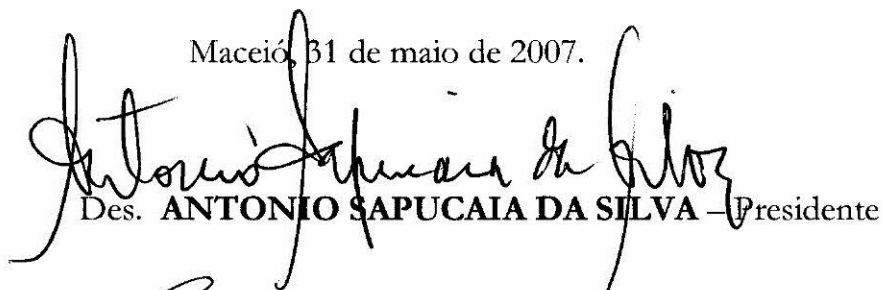 Maceió, 31 de maio de 2007.
Antonio Sapucaia da Silva
Des. ANTONIO SAPUCAIA DA SILVA – Presidente